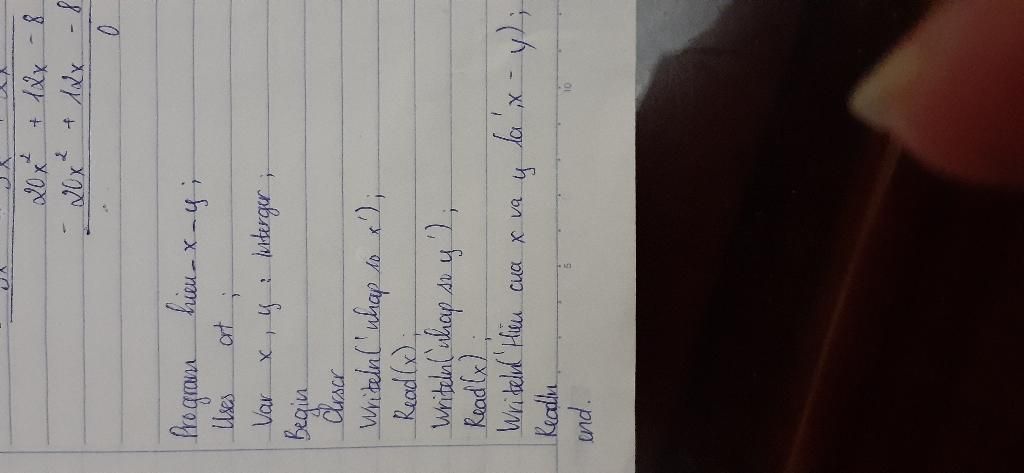 20x² + 12x - 8
- 20x² + 12x - 8
0
Program hieu-x-y;
Uses crt;
Var x, y : Interger;
Begin
Clrscr
Writeln('nhap so x');
Read(x);
Writeln('nhap so y');
Read(x);
Writeln('Hiêu cua x va y là', x - y);
Readln
end.
5
10